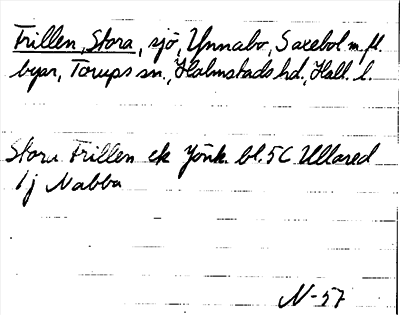 Frillen, Stora, sjö, Ynnabo, Saxebol m. fl.
byar, Torups sn., Halmstads hd., Hall. l.
Stora Frillen ek Jönk. bl. 5C Ullared
1j Nabba
N-57